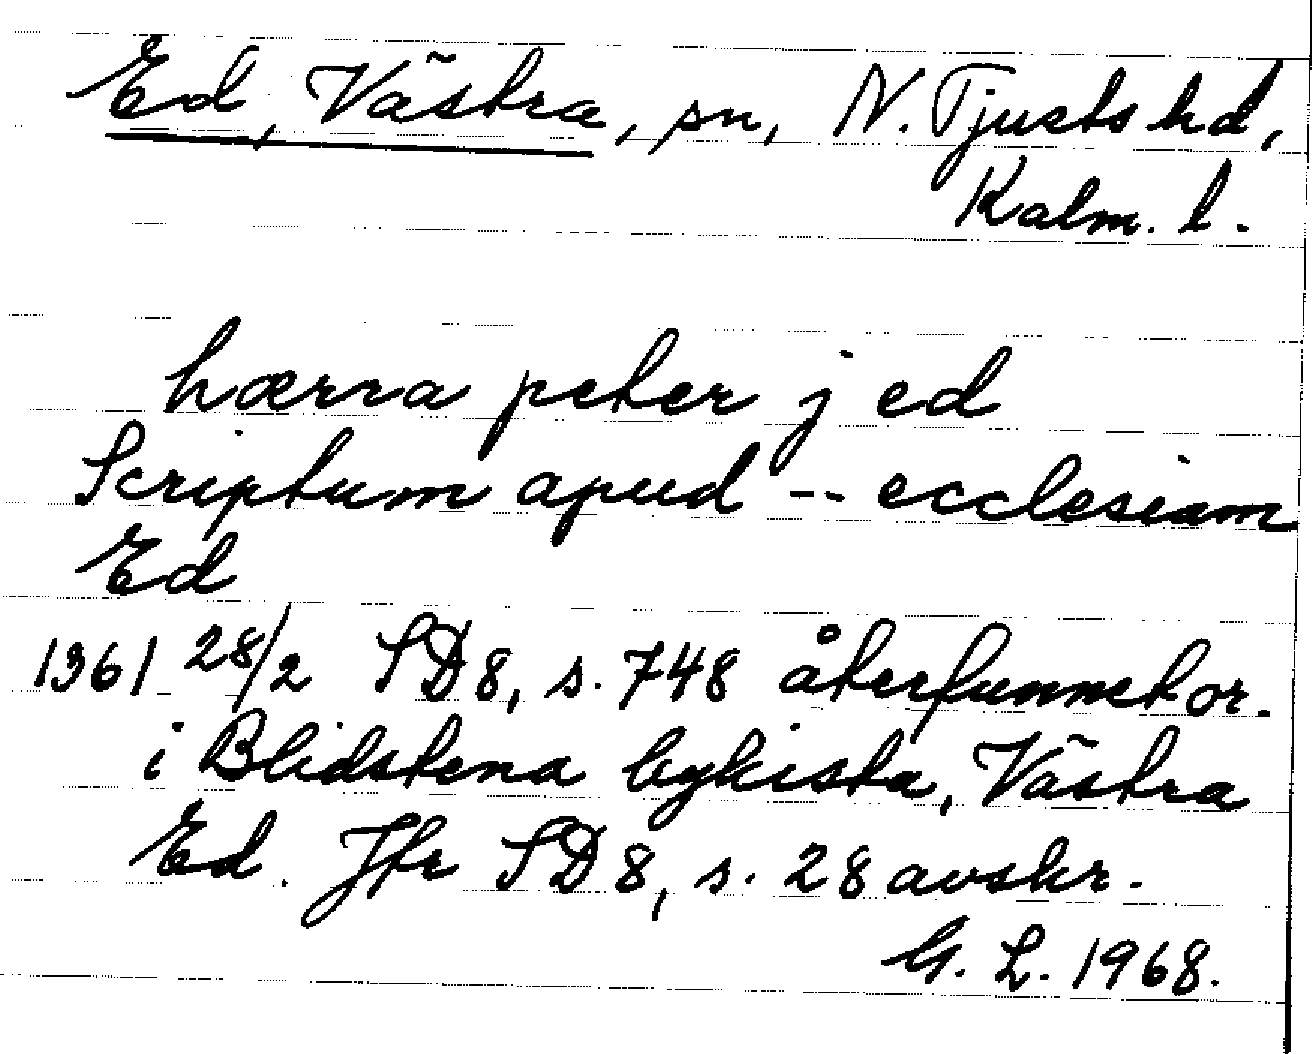 Ed, Västra, sn, N. Tjusts hd,
Kalm. l.
hærra peter j ed
Scriptum apud -- ecclesiam
Ed
1361 28/2 SD 8, s. 748 återfunnet or.
i Blidstena bykista, Västra
Ed. Jfr SD 8, s. 28 avskr.
G. L. 1968.